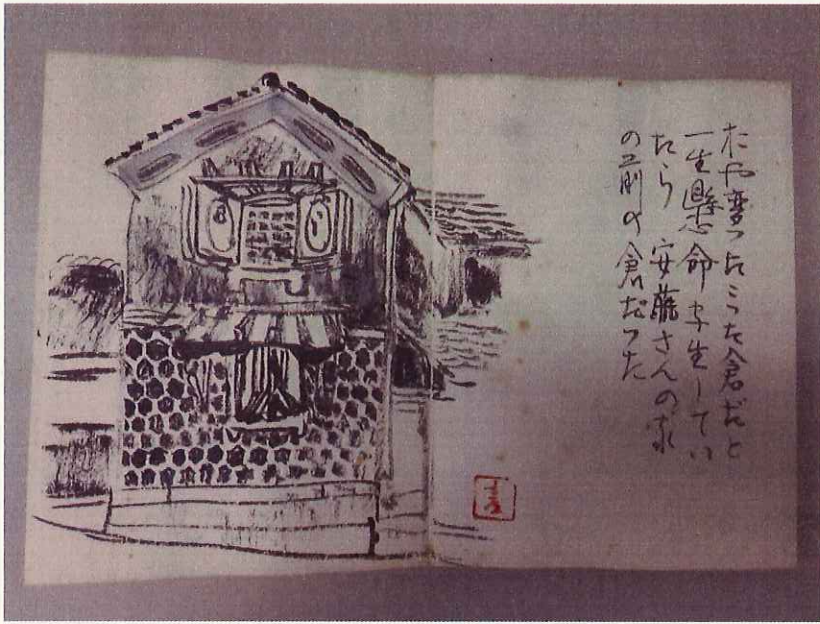 おや変ったこった倉だと
一生懸命写生してい
たら 安藤さんの家
の前の倉だった